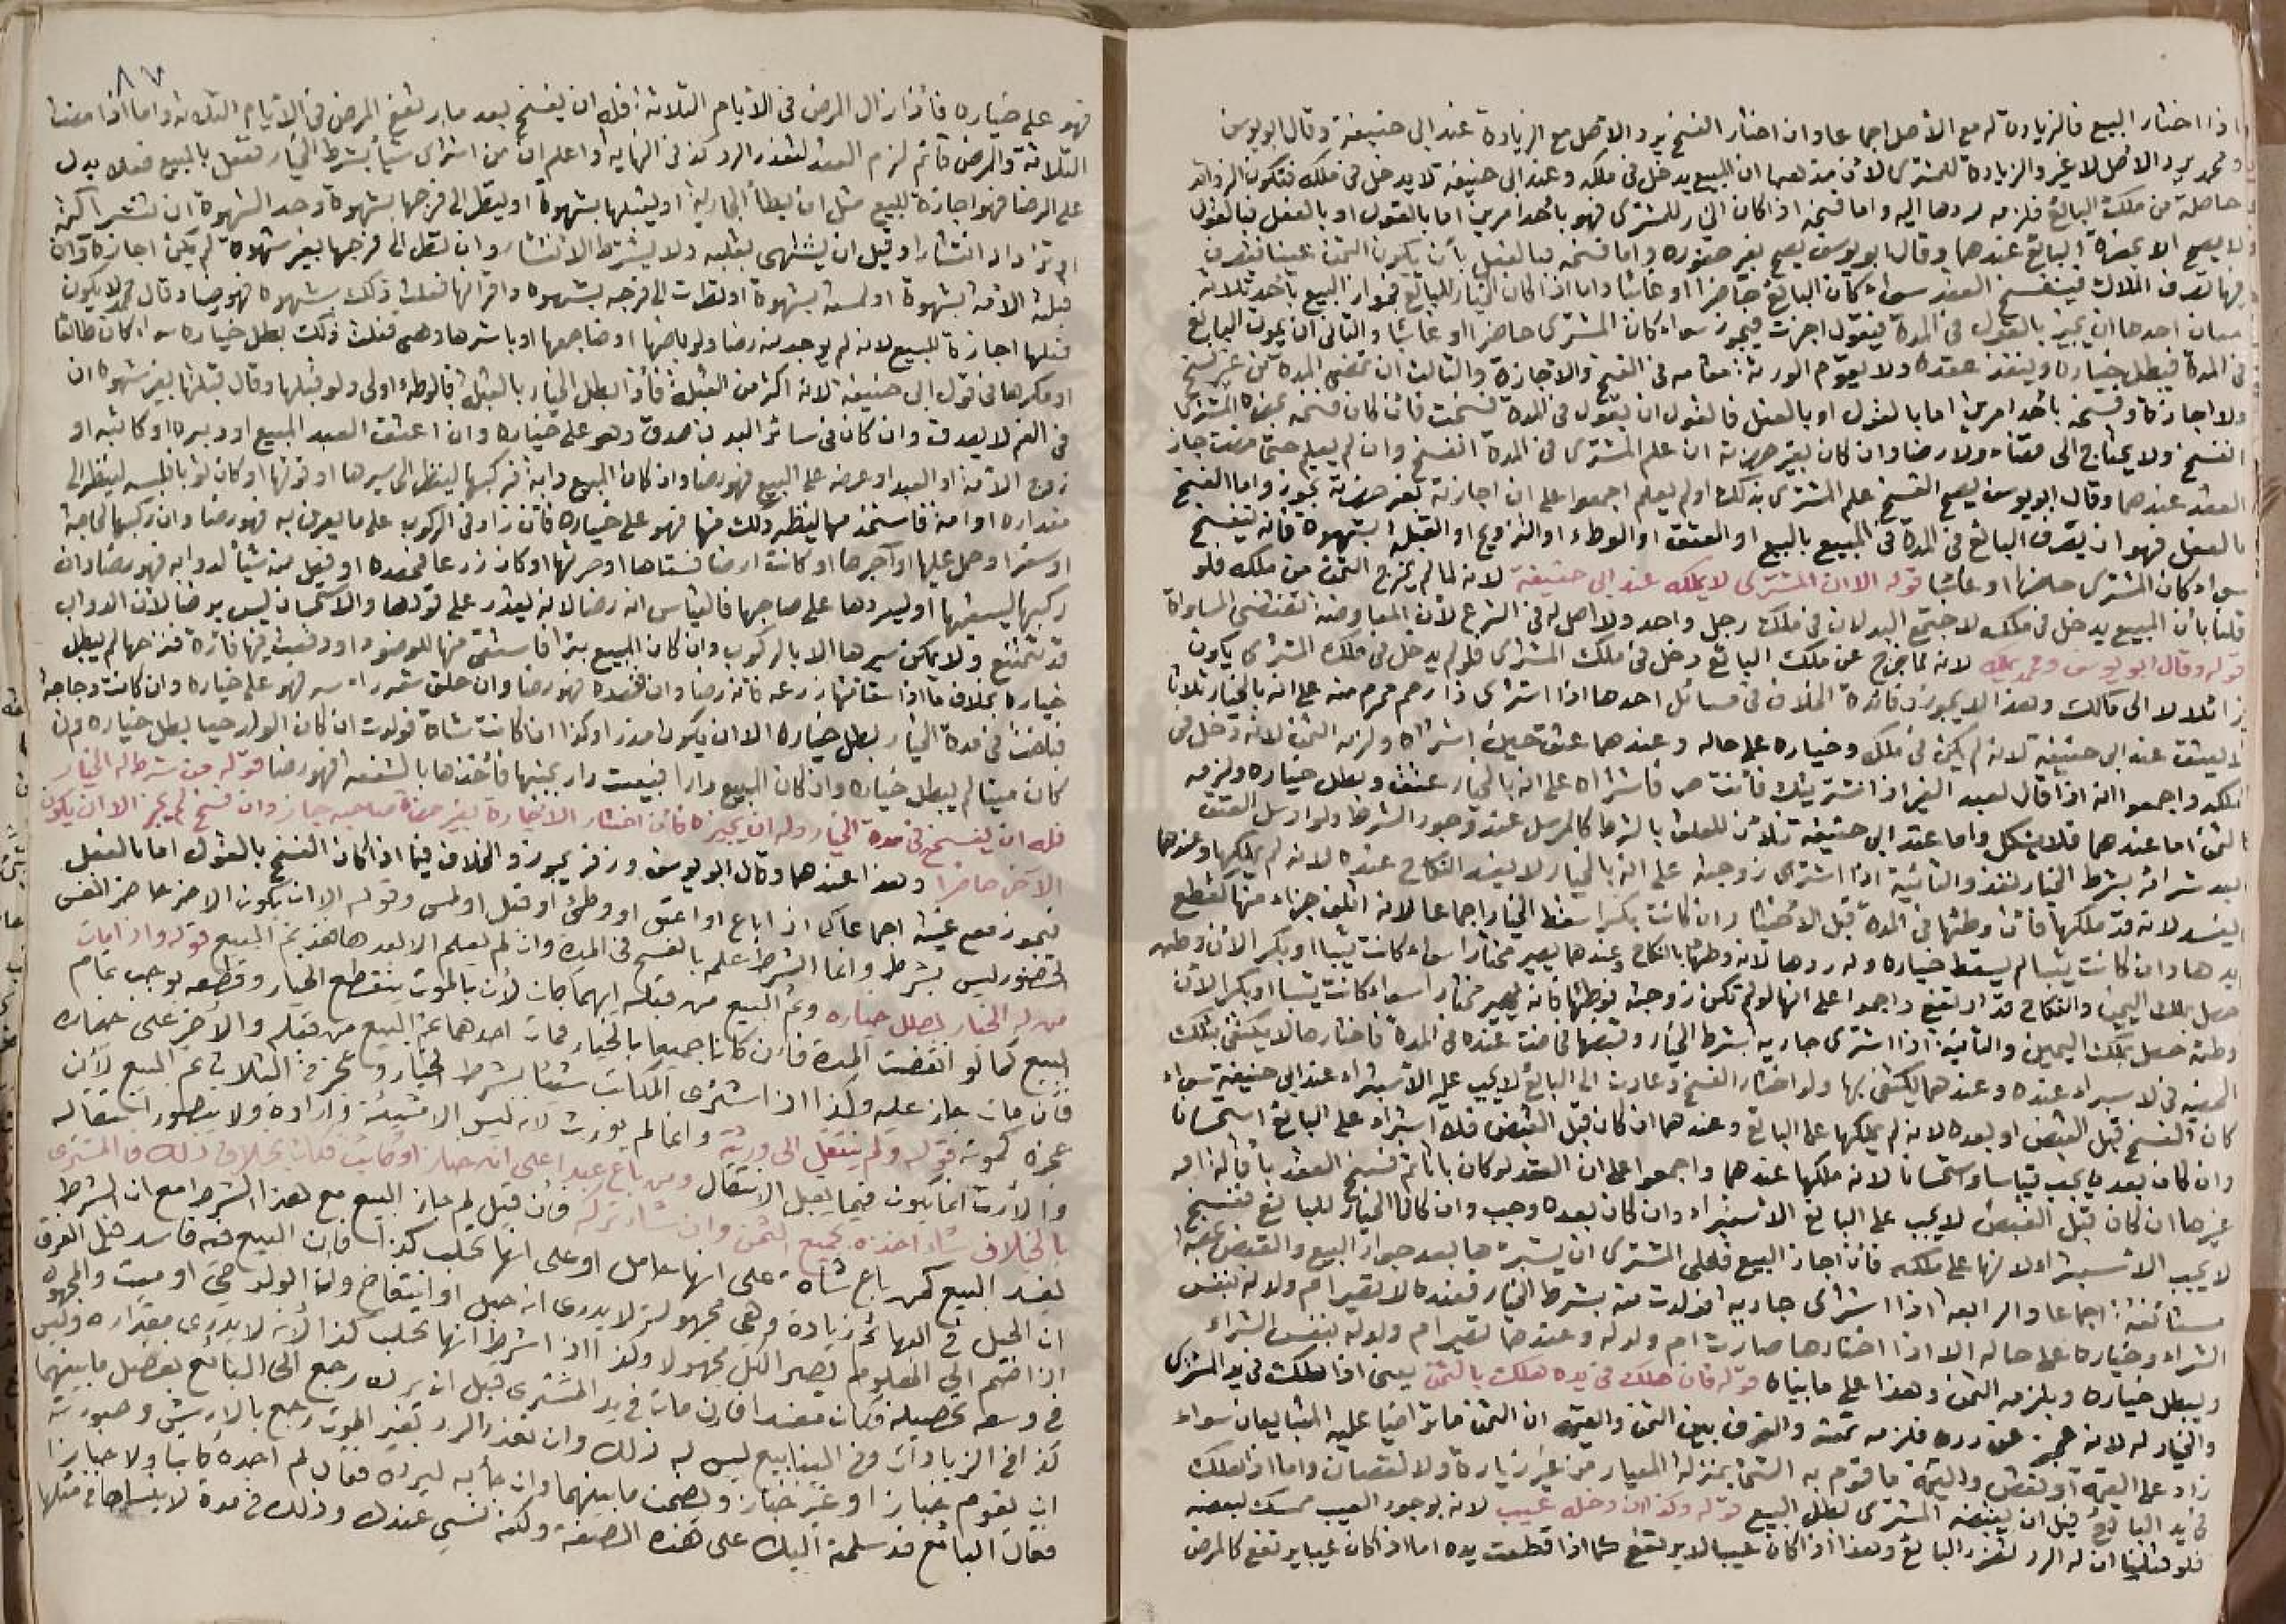 اذا اختار البيع فالزيادة له مع الأصل اجماعا وان اختار الفسخ يرد الاصل مع الزيادة عند ابى حنيفة وقال ابو يوسف
ومحمد يرد الاصل لا غير والزيادة للمشترى لأن من مذهبهما ان المبيع يدخل فى ملكه وعند ابى حنيفة لا يدخل فى ملكه فتكون الزوائد
حاصلة من ملك البائع فلزمه ردها اليه واما فسخه اذا كان الخيار للمشترى فهو بأحد امرين اما بالقول او بالفعل فبالقول
لا يصح الا بحضرة البائع عندهما وقال ابو يوسف يصح بغير حضوره واما فسخه بالفعل بأن يكون الثمن عينا فتصرف
فيها تصرف الملاك فينفسخ العقد سواء كان البائع حاضرا او غائبا واما اذا كان الخيار للبائع فجواز البيع بأحد ثلاثة
معان احدها ان يجيز بالقول فى المدة فيقول اجزت فيجوز سواء كان المشترى حاضرا او غائبا والثانى ان يموت البائع
فى المدة فيبطل خياره وينفذ عقده ولا يقوم الورثة مقامه فى الفسخ والاجازة والثالث ان تمضى المدة من غير فسخ
ولا اجازة وفسخه بأحد امرين اما بالقول او بالفعل فالقول ان يقول فى المدة فسخت فان كان فسخه بحضرة المشترى
انفسخ ولا يحتاج الى قضاء ولا رضا وان كان بغير حضرته ان علم المشترى فى المدة انفسخ وان لم يعلم حتى مضت جاز
العقد عندهما وقال ابو يوسف يصح الفسخ علم المشترى بذلك او لم يعلم اجمعوا على ان اجازته بغير حضرته تجوز واما الفسخ
بالفعل فهو ان يتصرف البائع فى المدة فى المبيع بالبيع او العتق او الوطء او التزويج او القبلة بشهوة فانه ينفسخ
سواء كان المشترى حاضرا او غائبا قوله الا ان المشترى لا يملكه عند ابى حنيفة لانه لما لم يخرج الثمن من ملكه فلو
قلنا بأن المبيع يدخل فى ملكه لاجتمع البدلان فى ملك رجل واحد ولا اصل له فى الشرع لأن المعاوضة تقتضى المساواة
قوله وقال ابو يوسف ومحمد يملكه لانه لما خرج عن ملك البائع دخل فى ملك المشترى فلو لم يدخل فى ملك المشترى يكون
زائلا لا الى مالك وهذا لا يجوز وفائدة الخلاف فى مسائل احدها اذا اشترى ذا رحم محرم منه على انه بالخيار ثلاثا
لا يعتق عند ابى حنيفة لانه لم يكن فى ملكه وخياره على حاله وعندهما عتق حين اشتراه ولزمه الثمن لانه دخل فى
ملكه واجمعوا انه اذا قال لعبد الغير اذا اشتريتك فانت حر فاشتراه على انه بالخيار عتق وبطل خياره ولزمه
الثمن اما عندهما فلا يشكل واما عند ابى حنيفة فلأن المعلق بالشرط كالمرسل عند وجود الشرط ولو ارسل العتق
بعد شرائه بشرط الخيار نفذ والثانية اذا اشترى زوجته على انه بالخيار لا يفسد النكاح عنده لانه لم يملكها وعندهما
يفسد لانه قد ملكها فان وطئها فى المدة قبل الاختيار ان كانت بكرا سقط الخيار اجماعا لانه اتلف جزاء منها لقطع
يدها وان كانت ثيبا لم يسقط خياره وله ردها لانه وطئها بالنكاح وعندهما يصير مختارا سواء كانت ثيبا او بكر الأن وطئه
حصل بملك اليمين والنكاح قد ارتفع واجمعوا على انها لو لم تكن زوجته فوطئها فانه يصير مختارا سواء كانت ثيبا او بكرا لأن
وطئه حصل بملك اليمين والثانية اذا اشترى جارية بشرط الخيار وقبضها فحاضت عنده فى المدة فاختارها لا يكتفى بتلك
الحيضة فى الاستبراء عنده وعندهما يكتفى بها ولو اختار الفسخ وعادت الى البائع لا يجب عليه الاستبراء عند ابى حنيفة سواء
كان الفسخ قبل القبض او بعده لانه لم يملكها على البائع وعندهما ان كان قبل القبض فلا استبراء على البائع استحسانا
وان كان بعده يجب قياسا واستحسانا لانه ملكها عندهما واجمعوا على ان العقد لو كان باتا ثم فسخ العقد بأقالة او
غيرها ان كان قبل القبض لا يجب على البائع الاستبراء وان كان بعده وجب وان كان الخيار للبائع ففسخ
لا يجب الاستبراء لانها على ملكه فان اجاز البيع فعلى المشترى ان يستبرئها بعد جواز البيع والقبض بحيضة
مستأنفة اجماعا والرابعة اذا اشترى جارية قد ولدت منه بشرط الخيار فعنده لا تصير ام ولد له بنفس
الشراء وخياره على حاله الا اذا اختارها صارت ام ولد له وعندهما تصير ام ولد له بنفس الشراء
ويبطل خياره ويلزمه الثمن وهذا على ما بيناه قوله فان هلك فى يده هلك بالثمن يعنى اذا هلك فى يد المشترى
والخيار له لانه عجز عن رده فلزمه ثمنه والفرق بين الثمن والقيمة ان الثمن ما تراضيا عليه المتبايعان سواء
زاد على القيمة او نقص والقيمة ما قوم به الشئ بمنزلة المعيار من غير زيادة ولا نقصان واما اذا هلك
فى يد البائع قبل ان يقبضه المشترى بطل البيع قوله وكذا ان دخله عيب لانه بوجود العيب ممسك لبعضه
فلو قلنا ان له الرد لتضرر البائع وهذا اذا كان عيبا لا يرتفع كما اذا قطعت يده اما اذا كان عيبا يرتفع كالمرض
٨٧
فهو على خياره فأذا زال المرض فى الأيام الثلاثة فله ان يفسخ بعد ما يرتفع المرض فى الأيام الثلاثة واما اذا مضت
الثلاثة والمرض قائم لزم العقد لتعذر الرد كذا فى النهاية واعلم ان من اشترى شيأ بشرط الخيار ففعل بالمبيع فعلا يدل
على الرضا فهو اجازة للبيع مثل ان يطأ الجارية او يقبلها بشهوة او ينظر الى فرجها بشهوة وحد الشهوة ان تنتشر آلته
او تزداد انتشارا وقيل ان يشتهى بقلبه ولا يشترط الانتشار وان نظر الى فرجها بغير شهوة لم يكن اجازة وان
قبلته الأمة بشهوة او لمسته بشهوة او نظرت الى فرجه بشهوة واقر انها فعلت ذلك بشهوة فهو رضا وقال محمد لا يكون
فعلها اجازة للبيع لانه لم يوجد منه رضا ولو باضعها او ضاجعها او باشرها وهى فعلت ذلك بطل خياره سواء كان طائعا
او مكرها فى قول ابى حنيفة لانه اكثر من القبلة فأذا بطل الخيار بالقبلة فالوطء اولى ولو قبلها وقال قبلتها بغير شهوة ان
فى الفم لا يصدق وان كان فى سائر البدن صدق وهو على خياره وان اعتق العبد المبيع او دبره او كاتبه او
زوج الأمة او العبد او عرضه على البيع فهو رضا وان كان المبيع دابة فركبها لينظر الى سيرها او قوتها او كان ثوبا فلبسه لينظر الى
مقداره او امة فاستخدمها لينظر ذلك منها فهو على خياره فان زاد فى الركوب على ما يعرف به فهو رضا وان ركبها لحاجة
او سفر او حمل عليها او آجرها او كانت ارضا فسقاها او حرثها او كان زرعا فحصده او فصل منه شيأ لدوابه فهو رضا وان
ركبها ليسقيها او ليردها على صاحبها فالقياس انه رضا لانه يقدر على قودها والاستحسان ليس برضا لأن الدواب
قد تمتنع ولا يمكن سيرها الا بالركوب وان كان المبيع بئرا فاستقى منها للوضوء او وقعت فيها فأرة فنزحها لم يبطل
خياره بخلاف ما اذا سقا منها زرعه فانه رضا وان قصده فهو رضا وان حلق شعر راسه فهو على خياره وان كانت دجاجة
فباضت فى مدة الخيار بطل خياره الا ان يكون مذرا وكذا ان كانت شاة فولدت ان كان الولد حيا بطل خياره وان
كان ميتا لم يبطل خياره وان كان المبيع دارا فبيعت دار بجنبها فأخذها بالشفعة فهو رضا قوله من شرط له الخيار
فله ان يفسخ فى مدة الخيار وله ان يجيزه فان اختار الاجازة بغير حضرة صاحبه جاز وان فسخ لم يجز الا ان يكون
الآخر حاضرا وهذا عندهما وقال ابو يوسف وزفر يجوز والخلاف فيما اذا كان الفسخ بالقول اما بالفعل
فيجوز مع غيبته اجماعا كما اذا اباع او اعتق او وطئ او قبل او لمس وقوله الا ان يكون الاخر حاضر نفس
الحضور ليس بشرط وانما الشرط علمه بالفسخ فى المدة وان لم يعلم الا بعدها فقد تم البيع قوله واذا مات
من له الخيار بطل خياره وتم البيع من قبله ايهما كان لأن بالموت ينقطع الخيار وقطعه يوجب تمام
البيع كما لو انقضت المدة فأن كانا جميعا بالخيار فمات احدهما تم البيع من قبله والأخر على خياره
فأن مات جاز عليه وكذا اذا اشترى المكاتب شيئا بشرط الخيار وعجز فى الثلاث تم البيع لأن
عجزه كموته قوله ولم ينتقل الى ورثته وانما لم يورث لانه ليس الا مشيئة وارادة ولا يتصور انتقاله
والأرث انما يكون فيما يقبل الانتقال ومن باع عبدا على انه خباز او كاتب فكان بخلاف ذلك فالمشترى
بالخلاف شاء اخذه بجميع الثمن وان شاء تركه فأن قيل لم جاز البيع مع هذا الشرط مع ان الشرط
يفسد البيع كمن باع شاة على انها حامل او على انها تحلب كذا فأن البيع فيه فاسد قيل الفرق
ان الحبل فى البهائم زيادة وهى مجهولة لا يدرى انه حبل او انتفاخ وان الولد حى او ميت والمجهول
اذا ضم الى المعلوم يصير الكل مجهولا وكذا اذا اشرط انها تحلب كذا لأنه لا يدرى مقداره وليس
فى وسعه تحصيله فكان مفسدا فان مات فى يد المشترى قبل ان يرده رجع الى البائع بفضل ما بينهما
كذا فى الزيادات وفى الينابيع ليس له ذلك وان تعذر الرد بغير الموت رجع بالأرش وصورته
ان يقوم خبازا وغير خباز ويضمن ما بينهما وان جأ به ليرده فقال لم اجده كاتبا ولا خبازا
فقال البائع قد سلمته اليك على هذه الصفة ولكنه نسى عندك وذلك فى مدة لا ينساها فى مثلها